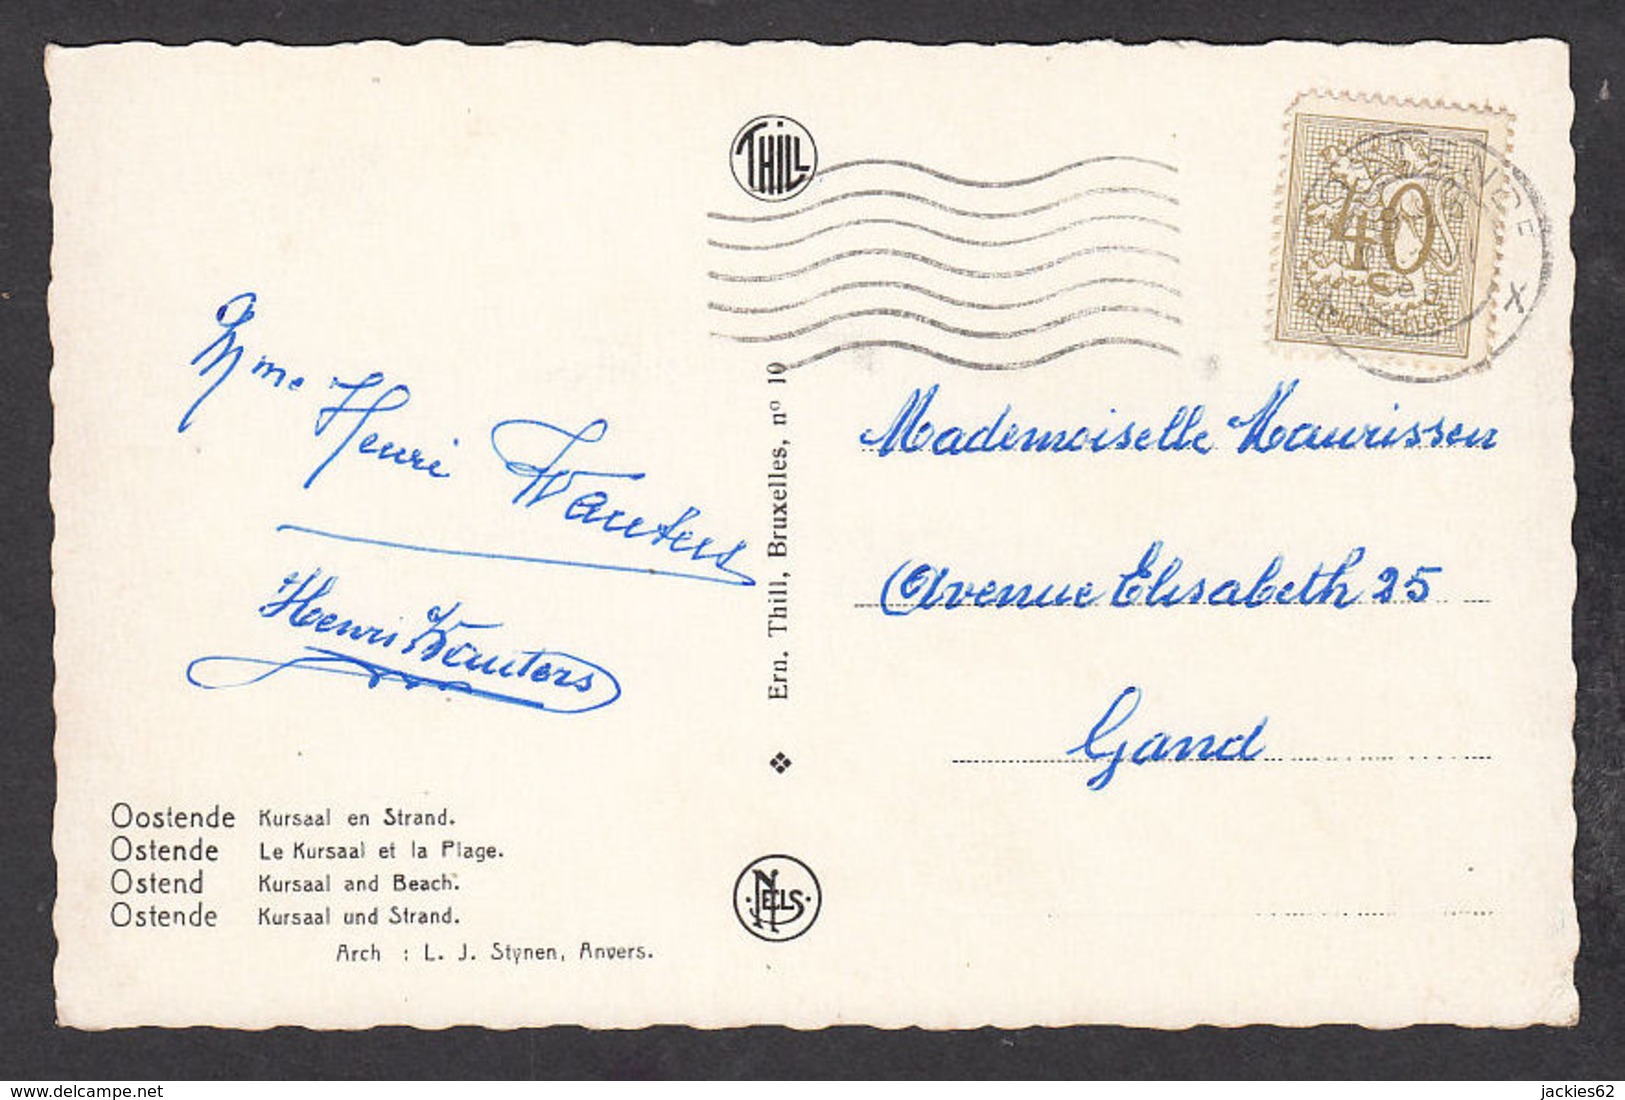 THILL
OOSTENDE
X
40
Ce
BELGIQUE-BELGIË
Mme Henri Wauters
Henri Wauters
Ern. Thill, Bruxelles, nº 10
Mademoiselle Maurissen
Avenue Elisabeth 25
Gand
Oostende Kursaal en Strand.
Ostende Le Kursaal et la Plage.
Ostend Kursaal and Beach.
Ostende Kursaal und Strand.
Arch : L. J. Stynen, Anvers.
NELS
www.delcampe.net
jackies62